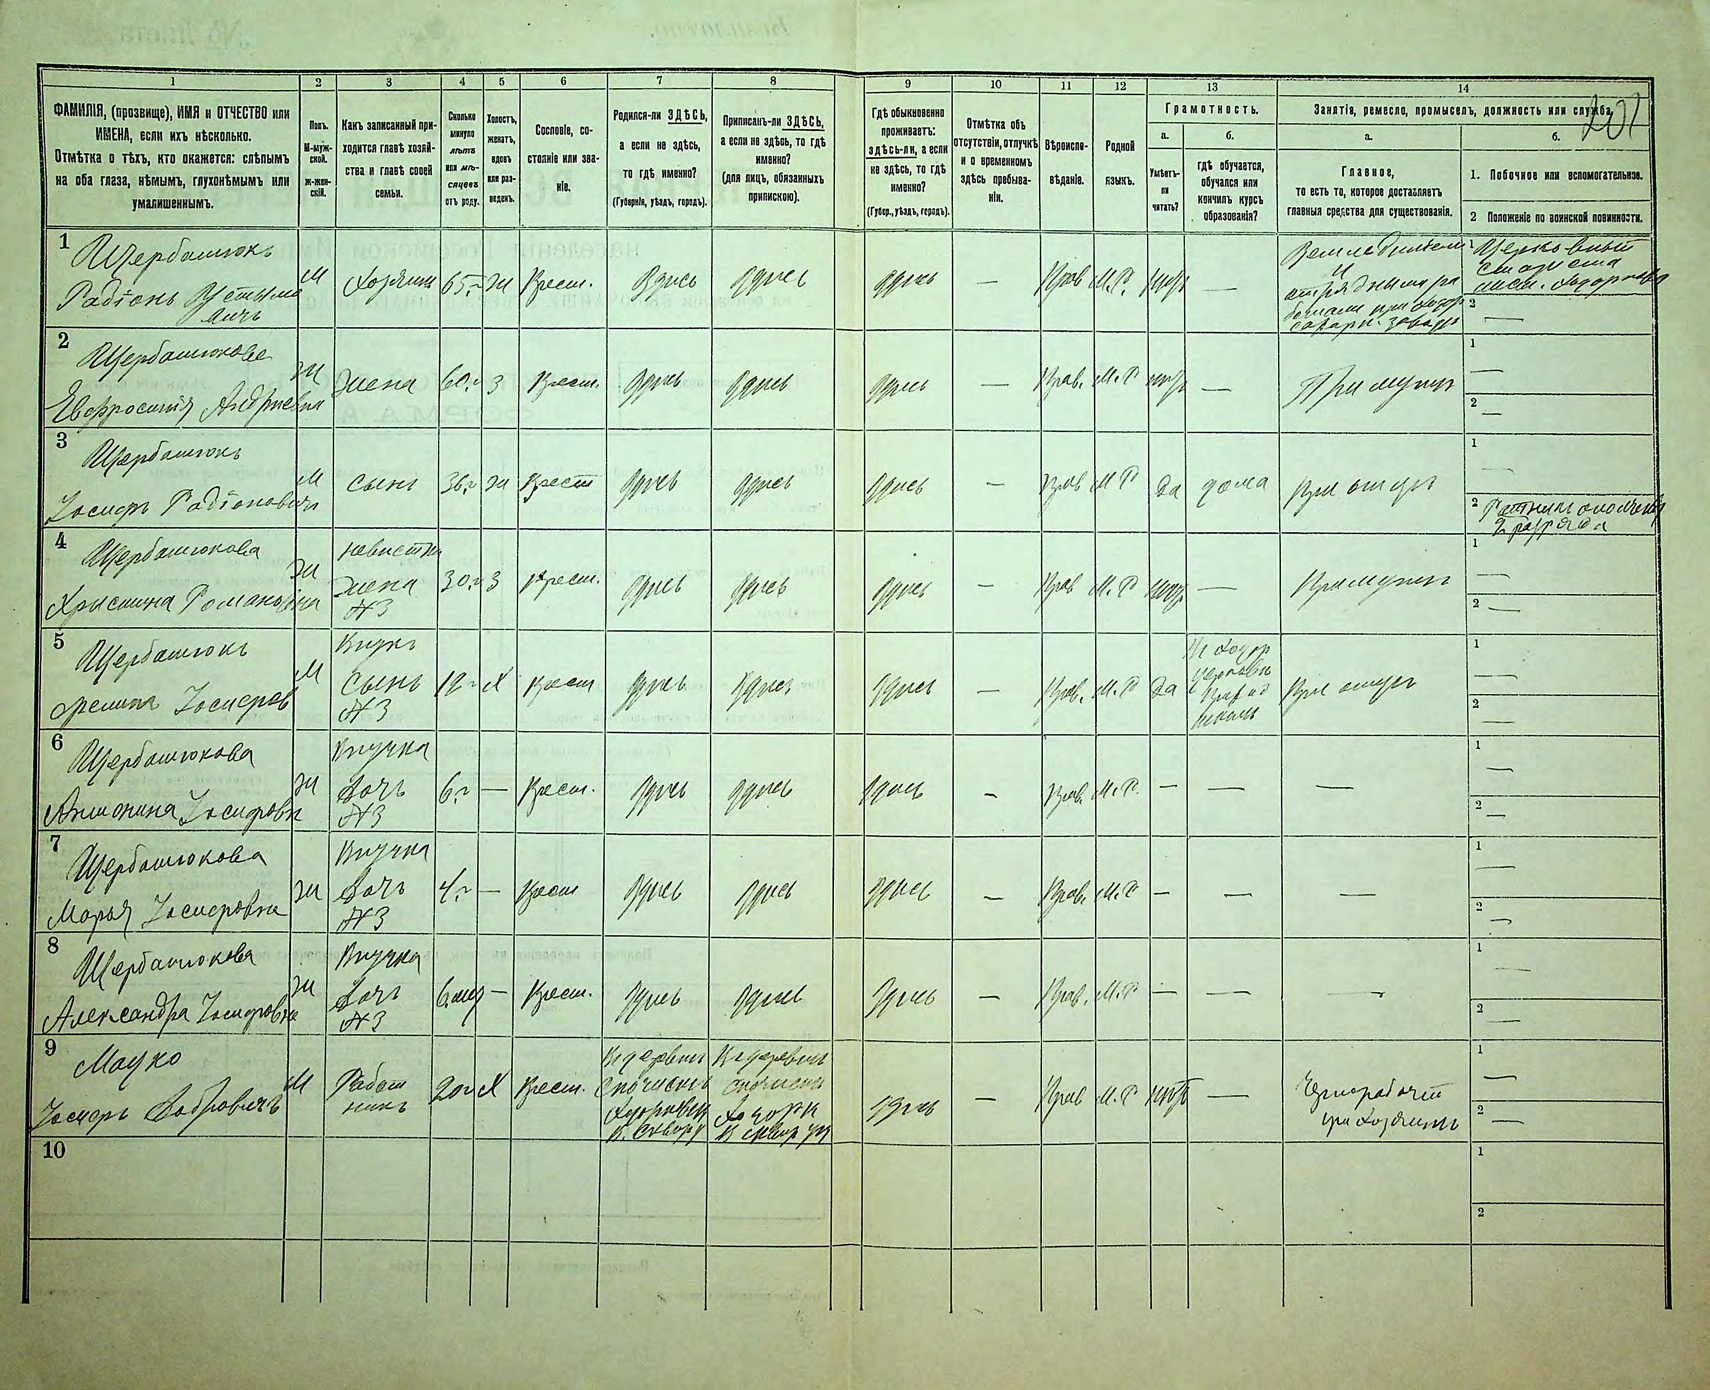 201
1 2 3 4 5 6 7 8 9 10 11 12 13 14
ФАМИЛІЯ, (прозвище), ИМЯ и ОТЧЕСТВО или
ИМЕНА, если ихъ нѣсколько.
Отмѣтка о тѣхъ, кто окажется: слѣпымъ
на оба глаза, нѣмымъ, глухонѣмымъ или
умалишеннымъ.
Полъ.
М-муж-
ской.
ж-жен-
скій.
Какъ записанный при-
ходится главѣ хозяй-
ства и главѣ своей
семьи.
Сколько
минуло
лѣтъ
или мѣ-
сяцевъ
отъ роду.
Холостъ,
женатъ,
вдовъ
или раз-
веденъ.
Сословіе, со-
стояніе или зва-
ніе.
Родился-ли ЗДѢСЬ,
а если не здѣсь,
то гдѣ именно?
(Губернія, уѣздъ, городъ).
Приписанъ-ли ЗДѢСЬ,
а если не здѣсь, то гдѣ
именно?
(для лицъ, обязанныхъ
припискою).
Гдѣ обыкновенно
проживаетъ:
здѣсь-ли, а если
не здѣсь, то гдѣ
именно?
(Губер., уѣздъ, городъ).
Отмѣтка объ
отсутствіи, отлучкѣ
и о временномъ
здѣсь пребыва-
ніи.
Вѣроиспо-
вѣданіе.
Родной
языкъ.
Грамотность.
а.
Умѣетъ-
ли
читать?
б.
гдѣ обучается,
обучался или
кончилъ курсъ
образованія?
Занятія, ремесло, промыселъ, должность или служба.
а.
Главное,
то есть то, которое доставляетъ
главныя средства для существованія.
б.
1. Побочное или вспомогательное.
2 Положеніе по воинской повинности.
1
Щербатюкъ
Радіонъ Устымо
вичъ
М Хозяинъ 65 г Ж Крест. Здѣсь здѣсь здѣсь — Прав М.Р. нѣтъ —
Земледѣлецъ
и
при Ходор
сахарн. заводѣ
1 Церковный
староста
2 —
2
Щербатюкова
Евфросинія Андреевна
Ж Жена 60 г З Крест. здѣсь здѣсь здѣсь — Прав. М.Р нѣтъ — При мужѣ
1 —
2 —
3
Щербатюкъ
Іосифъ Радіоновичъ
М Сынъ 36 г Ж Крест здѣсь здѣсь здѣсь — Прав М Р да дома При отцѣ
1 —
2 Ратникъ ополченія
2 разряда
4
Щербатюкова
Христина Романовна
Ж
невѣстка
Жена
№3
30 г З Крест. здѣсь здѣсь здѣсь — Прав М.Р нѣтъ — При мужѣ
1 —
2 —
5
Щербатюкъ
Іосифов
М
Внукъ
Сынъ
№3
12 г Х Крест здѣсь здѣсь здѣсь — Прав. М.Р да
Ходор
церковн
приход
школѣ
При отцѣ
1 —
2 —
6
Щербатюкова
Антонина Іосифовна
Ж
Внучка
Дочь
№3
6 г — Крест. здѣсь здѣсь здѣсь — Прав. М.Р. — — —
1 —
2 —
7
Щербатюкова
Марья Іосифовна
Ж
Внучка
Дочь
№3
4 г — Крест здѣсь здѣсь здѣсь — Прав. М.Р — — —
1 —
2 —
8
Щербатюкова
Александра Іосифовна
Ж
Внучка
Дочь
№3
6 мѣс — Крест. здѣсь здѣсь здѣсь — Прав. М.Р — — —
1 —
2 —
9
Іосифъ
М
Работ
никъ
20 г Х Крест.
здѣсь — Прав М.Р нѣтъ —
Чернорабочій
при хозяинѣ
1 —
2 —
10
1
2